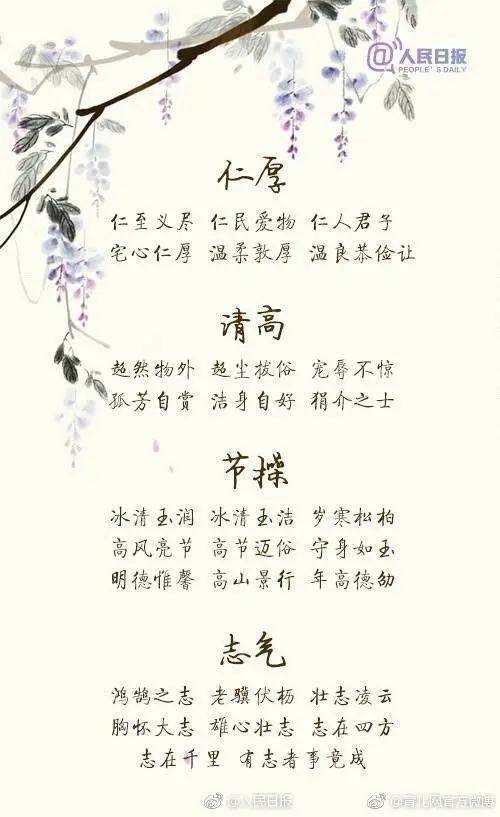 @人民日报
PEOPLE'S DAILY
仁厚
仁至义尽 仁民爱物 仁人君子
宅心仁厚 温柔敦厚 温良恭俭让
请高
超然物外 超尘拔俗 宠辱不惊
孤芳自赏 洁身自好 狷介之士
节操
冰清玉润 冰清玉洁 岁寒松柏
高风亮节 高节迈俗 守身如玉
明德惟馨 高山景行 年高德劭
志气
鸿鹄之志 老骥伏枥 壮志凌云
胸怀大志 雄心壮志 志在四方
志在千里 有志者事竟成
@人民日报
@育儿网官方微博